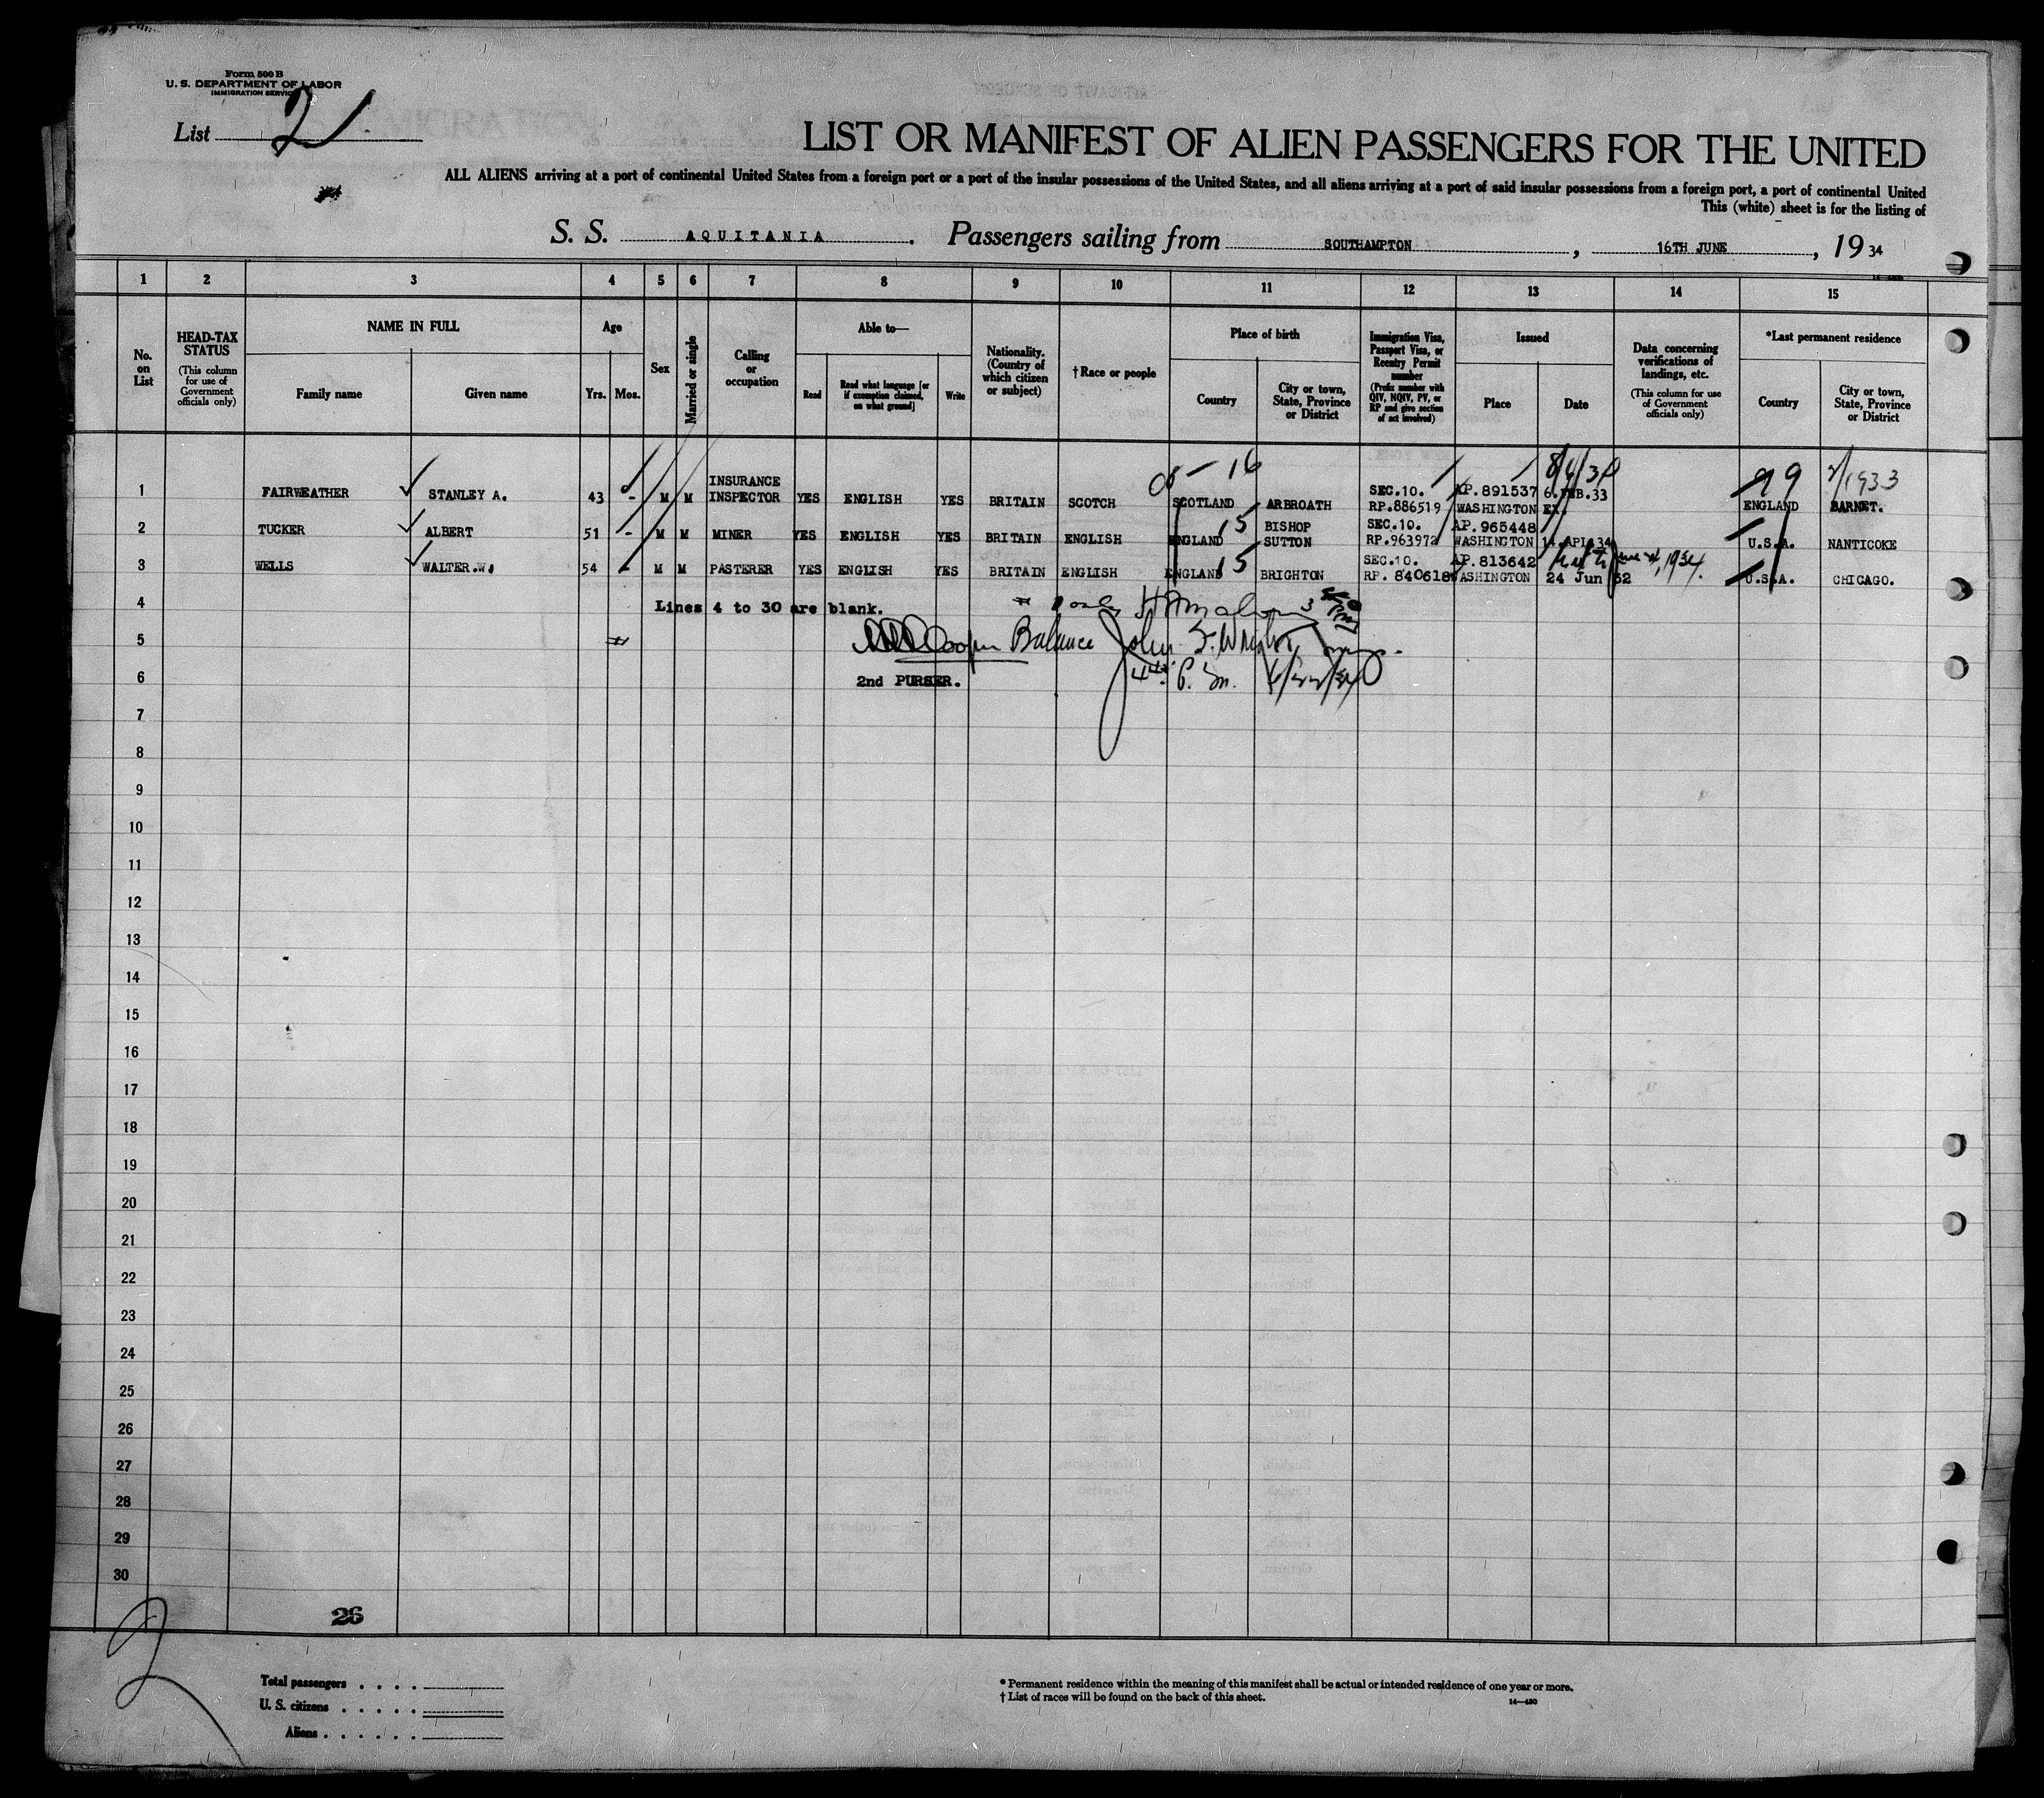 Form 500 B
U. S. DEPARTMENT OF LABOR
IMMIGRATION SERVICE
List 21
LIST OR MANIFEST OF ALIEN PASSENGERS FOR THE UNITED
ALL ALIENS arriving at a port of continental United States from a foreign port or a port of the insular possessions of the United States, and all aliens arriving at a port of said insular possessions from a foreign port, a port of continental United
This (white) sheet is for the listing of
S. S. AQUITANIA. Passengers sailing from SOUTHAMPTON, 16TH JUNE, 19 34
1 2 3 4 5 6 7 8 9 10 11 12 13 14 15
No. on List
HEAD-TAX STATUS (This column for use of Government officials only)
NAME IN FULL
Family name Given name
Age
Yrs. Mos.
Sex
Married or single
Calling or occupation
Able to—
Read
Read what language [or if exemption claimed, on what ground]
Write
Nationality. (Country of which citizen or subject)
†Race or people
Place of birth
Country
City or town, State, Province or District
Immigration Visa, Passport Visa, or Reentry Permit number (Prefix number with QIV, NQIV, PV, or RP and give section of act involved)
Issued
Place Date
Data concerning verifications of landings, etc. (This column for use of Government officials only)
*Last permanent residence
Country
City or town, State, Province or District
16 8/6/34 99 1933
1 FAIRWEATHER STANLEY A. 43 - M M INSURANCE INSPECTOR YES ENGLISH YES BRITAIN SCOTCH SCOTLAND ARBROATH SEC.10. RP.886519 AP.891537 WASHINGTON 6.FEB.33 EX. ENGLAND BARNET.
2 TUCKER ALBERT 51 - M M MINER YES ENGLISH YES BRITAIN ENGLISH ENGLAND 15 BISHOP SUTTON SEC.10. RP.963972 AP.965448 WASHINGTON 14.API.34 U.S.A. NANTICOKE
3 WELLS WALTER.W. 54 - M M PASTERER YES ENGLISH YES BRITAIN ENGLISH ENGLAND 15 BRIGHTON SEC.10. RP. 840618 AP.813642 WASHINGTON 24 Jun 32 June 24, 1934. U.S.A. CHICAGO.
4 Lines 4 to 30 are blank.
5 Cooper Balance John F. Wright
6 2nd PURSER. 6/22/34
7
8
9
10
11
12
13
14
15
16
17
18
19
20
21
22
23
24
25
26
27
28
29
30
26
2
Total passengers
U. S. citizens
Aliens
* Permanent residence within the meaning of this manifest shall be actual or intended residence of one year or more.
† List of races will be found on the back of this sheet.
14—430